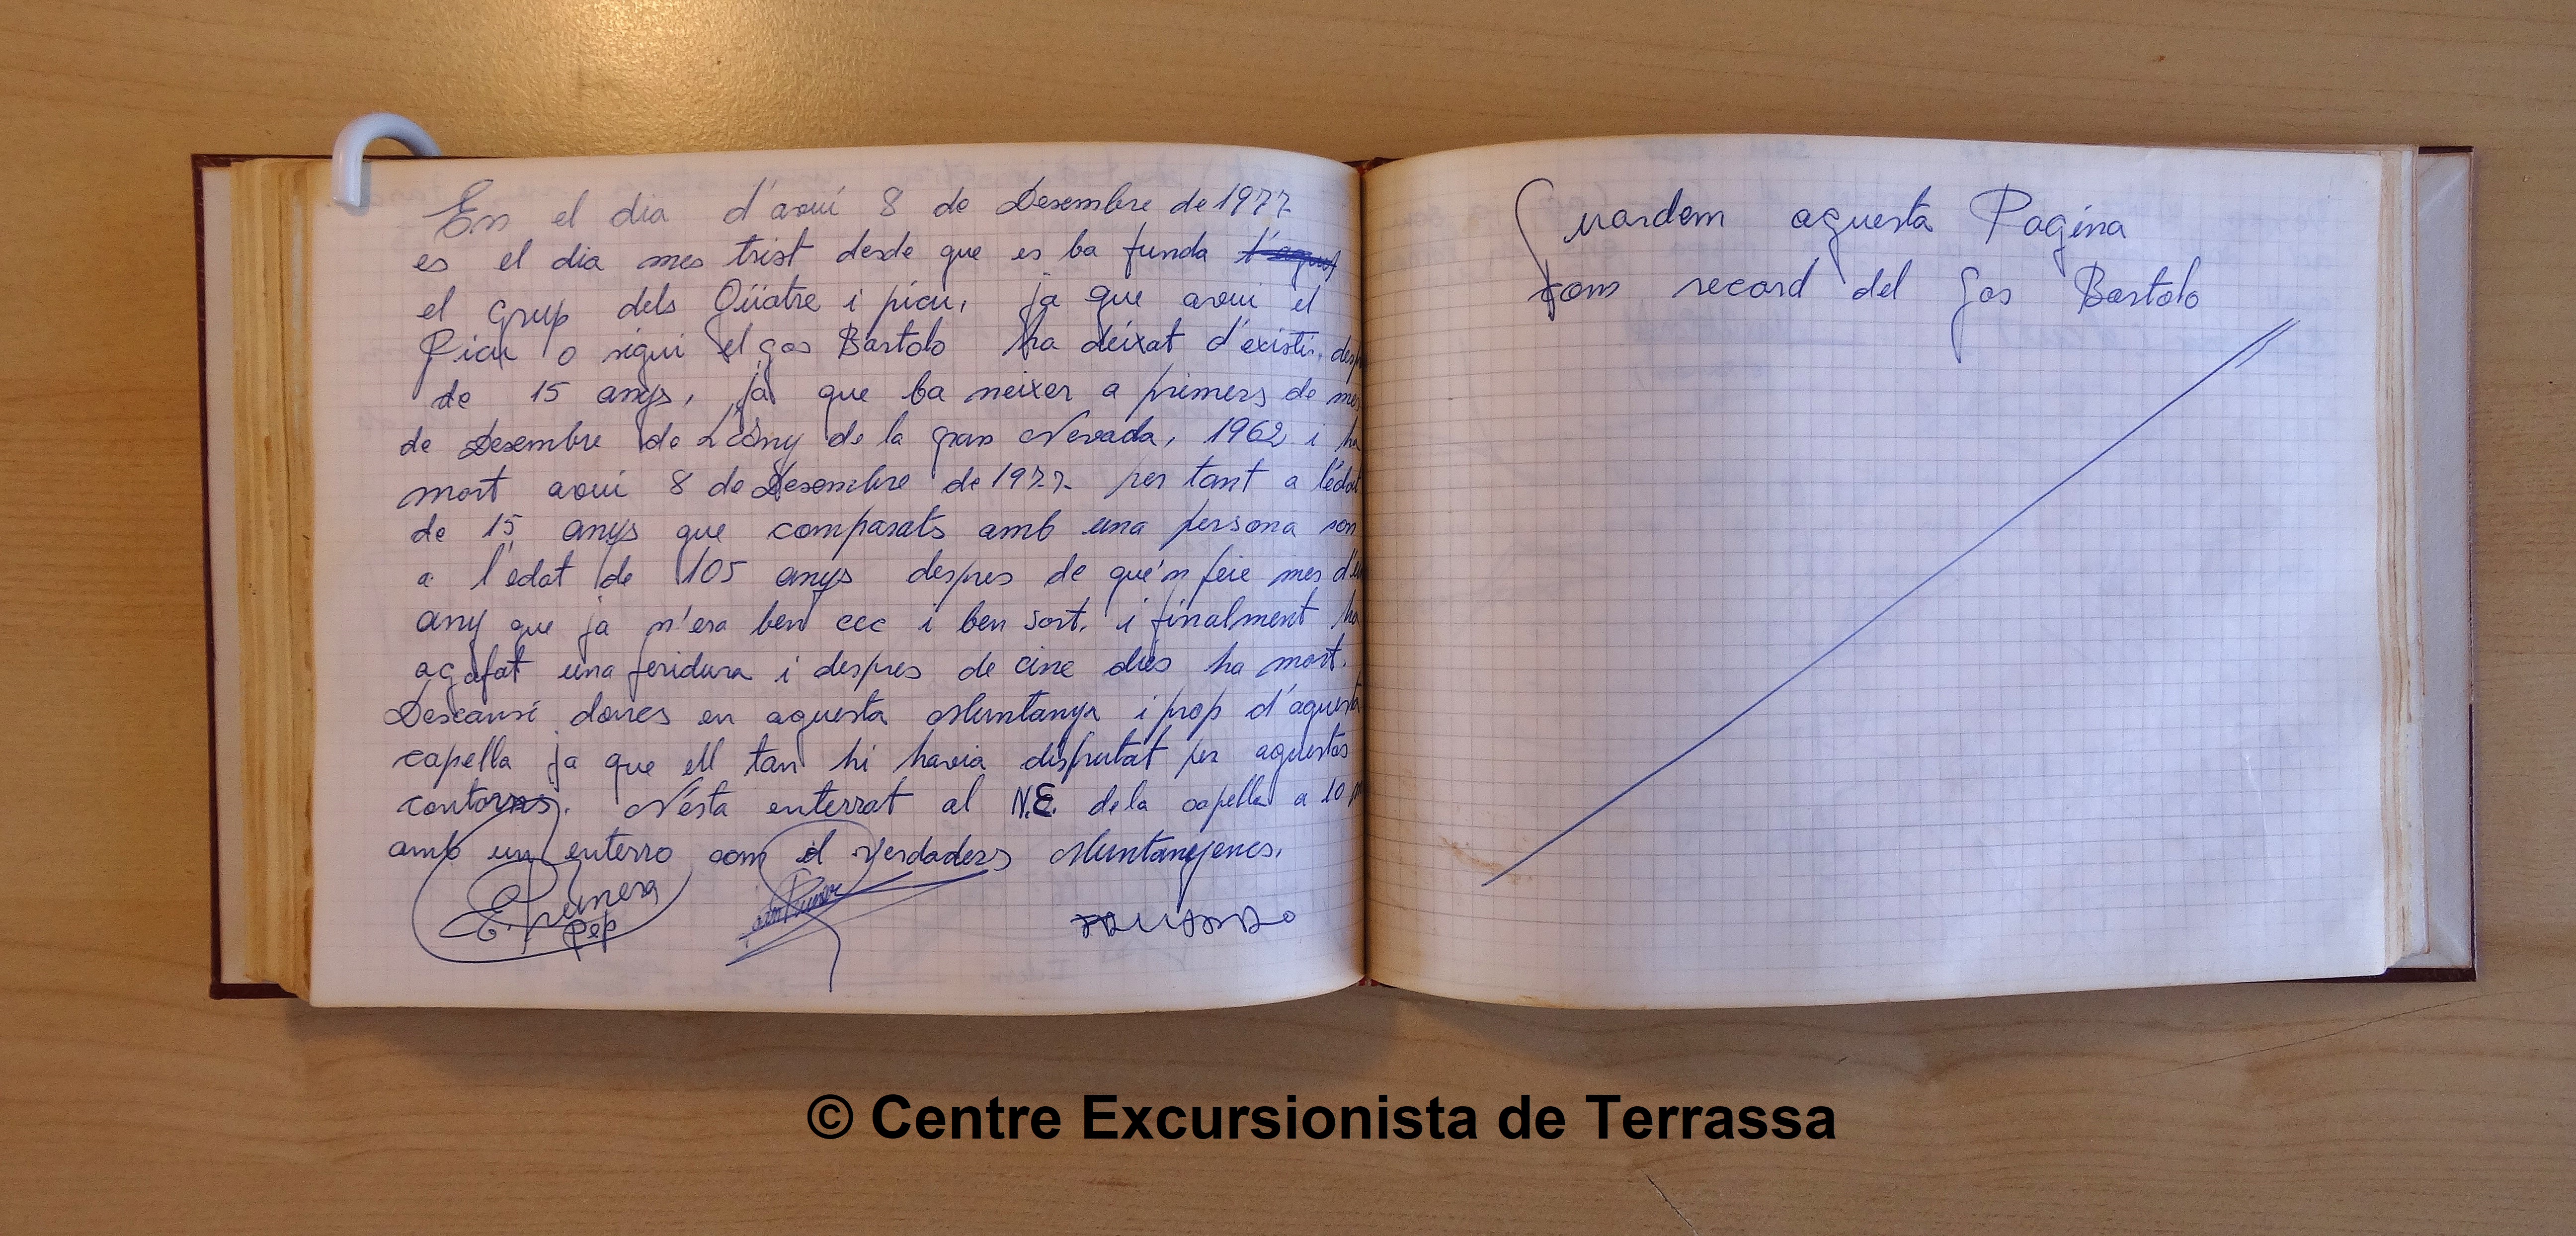 En el dia d'avui 8 de Desembre de 1977
es el dia mes trist desde que es ba funda
el Grup dels Qüatre i picu, ja que avui el
Picu o sigui el gos Bartolo ha deixat d'existi, desp
de 15 anys, ja que ba neixer a primers de mes
de Desembre de L'any de la gran Nevada, 1962 i ha
mort avui 8 de Desembre de 1977 per tant a l'edat
de 15 anys que comparats amb una persona son
a l'edat de 105 anys despres de que'n feie mes d'un
any que ja n'era ben cec i ben sort, i finalment ha
agafat una feridura i despres de cinc dies ha mort.
Descansi doncs en aquesta Muntanya i prop d'aquesta
capella ja que ell tan hi havia disfrutat per aquestas
contorns. N'esta enterrat al N.E. de la capella a 10
amb un enterro com el verdaders Muntanyencs.
E. Prunera
Pep
Guardem aquesta Pagina
com record del gos Bartolo
© Centre Excursionista de Terrassa